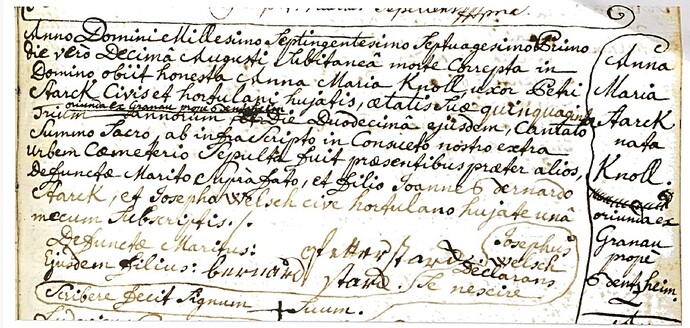 Anno Domini Millesimo Septingentesimo Septuagesimo Primo
die verò Decimâ Augusti Subitaneâ morte Correpta in
Domino obiit honesta Anna Maria Knoll, uxor Petri
Starck Civis et hortulani hujatis, ætatis suæ quinquaginta
oriunda ex Granau prope
Trium annorum die Duodecimâ ejusdem, Cantato
Summo Sacro, ab infra Scripto in Consueto nostro extra
Urbem Cæmeterio Sepulta fuit præsentibus præter alios,
defunctæ Marito Supra dato, et filio Joanne Bernardo
Starck, et Josepho Welsch cive hortulano hujate una
mecum Subscriptis.
Defunctæ Maritus: Petter Starck
Ejusdem filius: bernard starck
Josephus
Welsch
Declarans
Se nescire
Scribere fecit Signum + Suum.
Anna
Maria
Starck
nata
Knoll.
oriunda ex
Granau
prope